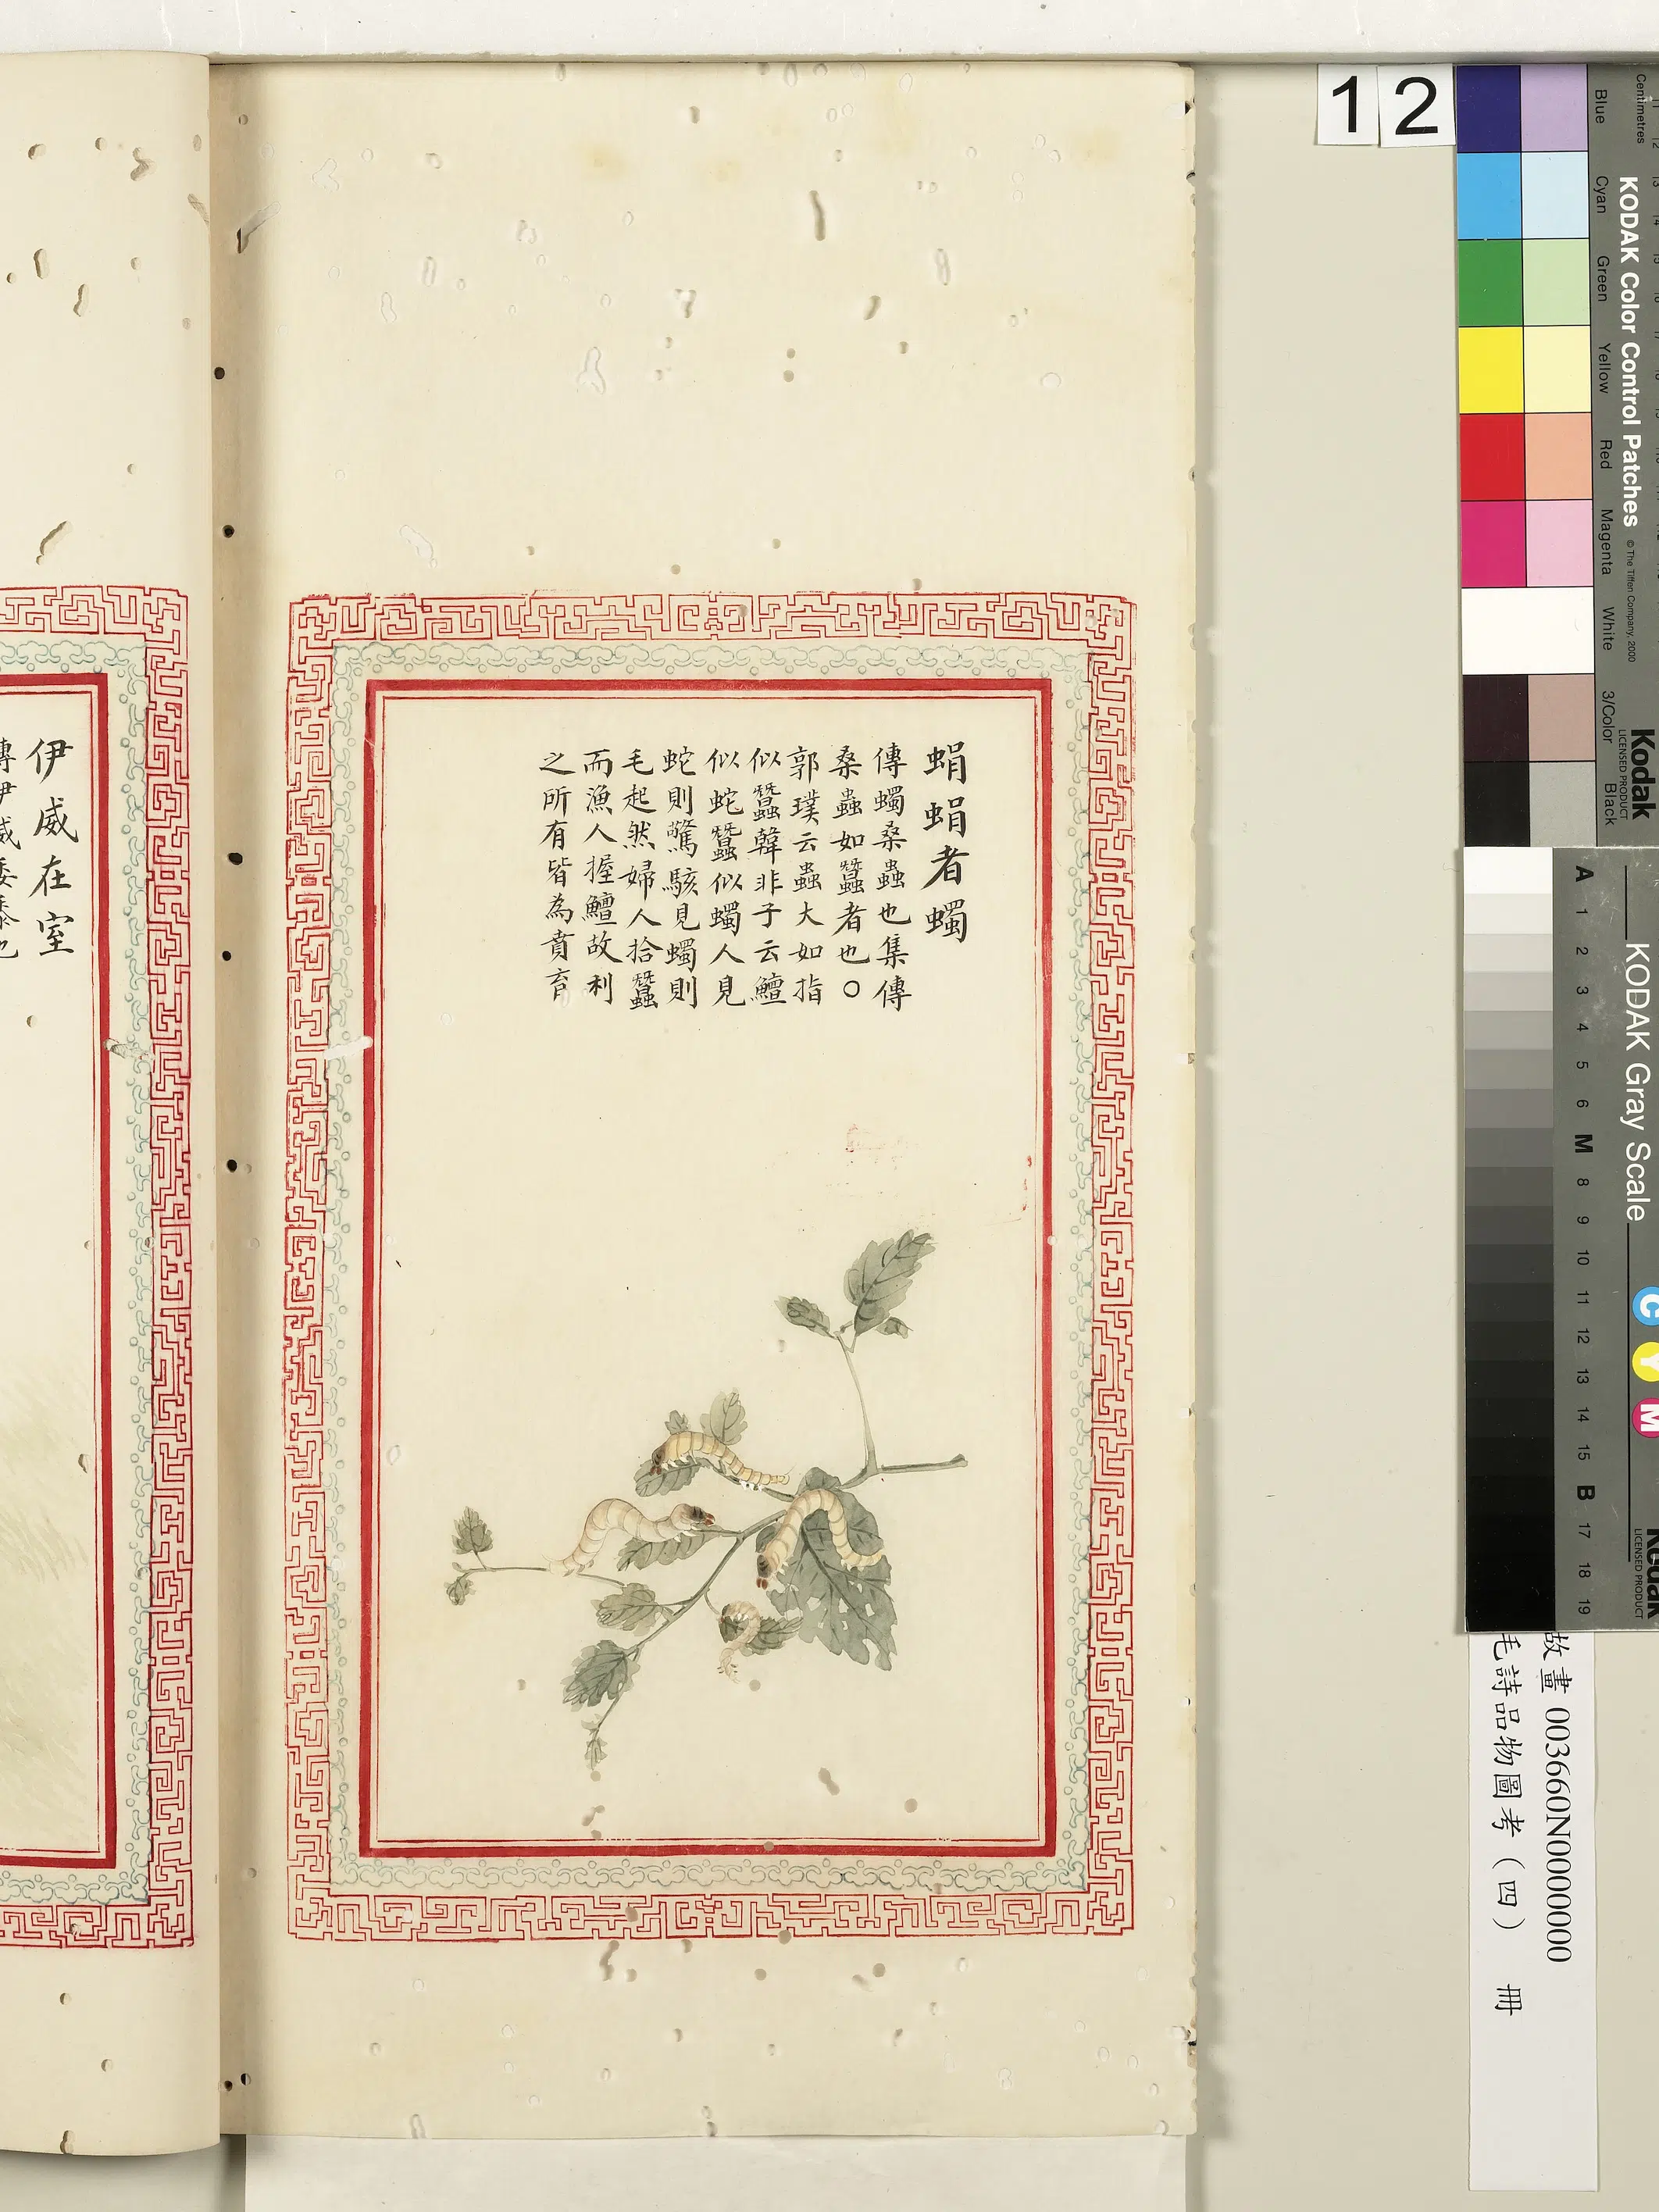 蜎蜎者蠋
傳蠋桑蟲也集傳
桑蟲如蠶者也〇
郭璞云蟲大如指
似蠶韓非子云鱣
似蛇蠶似蠋人見
蛇則驚駭見蠋則
毛起然婦人拾蠶
而漁人握鱣故利
之所有皆為賁育
伊威在室
傳伊威委黍也
12
Centimetres
KODAK Color Control Patches
© The Tiffen Company, 2000
Kodak
LICENSED PRODUCT
Blue
Cyan
Green
Yellow
Red
Magenta
White
3/Color
Black
KODAK Gray Scale
A 1 2 3 4 5 6 M 8 9 10 11 12 13 14 15 B 17 18 19
C
Y
M
Kodak
LICENSED PRODUCT
故畫 003660N000000000
毛詩品物圖考（四） 冊